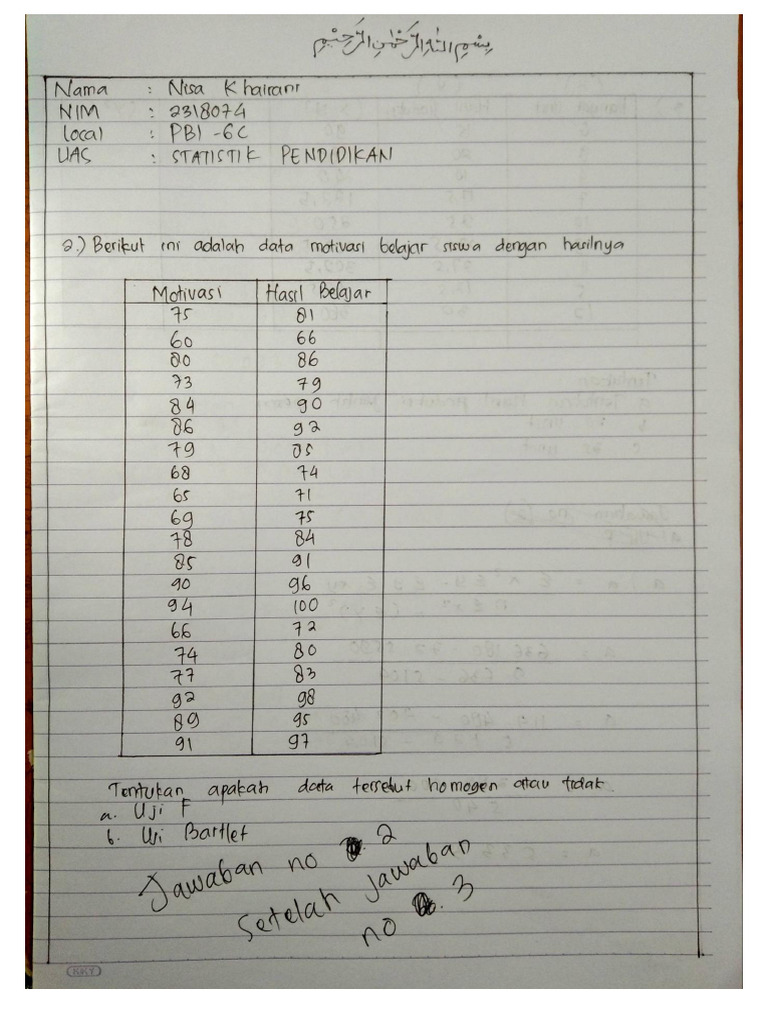 بسم الله الرحمن الرحيم
Nama : Nisa Khairani
NIM : 2318074
Local : PBI -6C
UAS : STATISTIK PENDIDIKAN
2.) Berikut ini adalah data motivasi belajar siswa dengan hasilnya
Motivasi Hasil Belajar
75 81
60 66
80 86
73 79
84 90
86 92
79 85
68 74
65 71
69 75
78 84
85 91
90 96
94 100
66 72
74 80
77 83
92 98
89 95
91 97
Tentukan apakah data tersebut homogen atau tidak.
a. Uji F
b. Uji Bartlet
Jawaban no 2
Setelah jawaban
no 3
KIKY